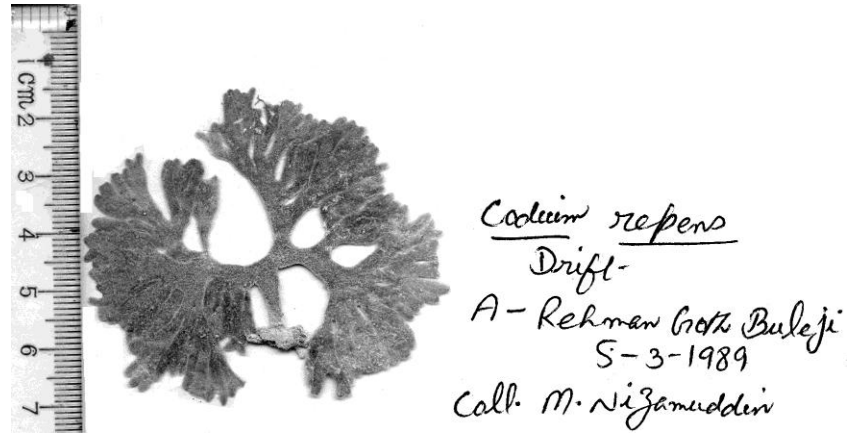 1cm 2 3 4 5 6 7
Codium repens
Drift-
A- Rehman Goth Buleji
5-3-1989
Coll. M. Nizamuddin